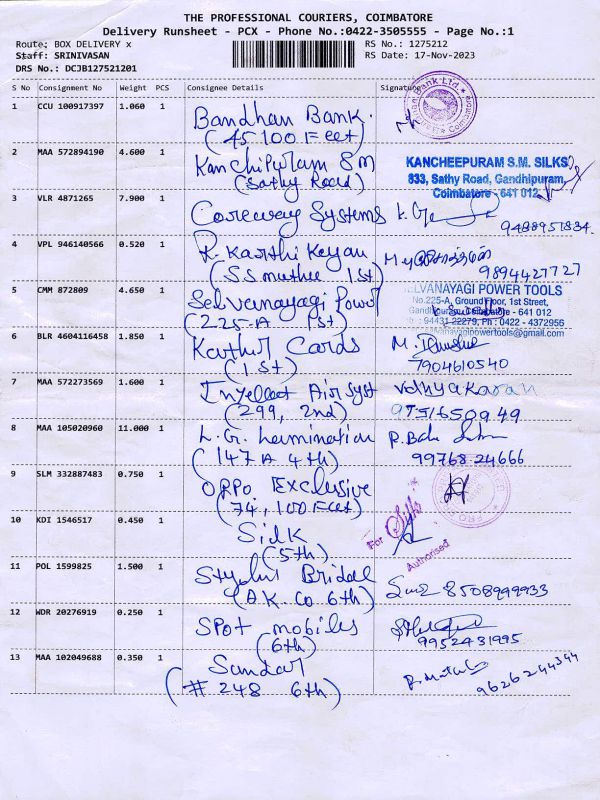 THE PROFESSIONAL COURIERS, COIMBATORE
Delivery Runsheet - PCX - Phone No.:0422-3505555 - Page No.:1
Route: BOX DELIVERY x
RS No.: 1275212
Staff: SRINIVASAN
RS Date: 17-Nov-2023
DRS No.: DCJB127521201
S No Consignment No Weight PCS Consignee Details Signature
1 CCU 100917397 1.060 1
Bandhan Bank.
(45 100 Feet)
2 MAA 572894190 4.600 1
Kanchipuram SM
(Sathy Road)
KANCHEEPURAM S.M. SILKS
833, Sathy Road, Gandhipuram,
Coimbatore - 641 012
3 VLR 4871265 7.900 1
Coreway Systems
9488951834.
4 VPL 946140566 0.520 1
R. Karthi Keyan
(S.S. muthu 1st)
9894427727
5 CMM 872809 4.650 1
Selvanayagi Power
(225-A 1st)
SELVANAYAGI POWER TOOLS
No.225-A, Ground Floor, 1st Street,
Gandhipuram, Coimbatore - 641 012
94431 22279, Ph : 0422 - 4372956
selvanayagipowertools@gmail.com
6 BLR 4604116458 1.850 1
Karthik Cards
(1st)
7904610540
7 MAA 572273569 1.600 1
Intellect Air Syst
(299, 2nd)
Vidhyakaran
8 MAA 105020960 11.000 1
L.G. Lamination
(147 A 4th)
99768 24666
9 SLM 332887483 0.750 1
OPPO Exclusive
(74, 100 Feet)
10 KDI 1546517 0.450 1
Silk
(5th)
For Silk
Authorised
11 POL 1599825 1.500 1
Stylui Bridal
(A.K. Co. 6th)
8508999933
12 WDR 20276919 0.250 1
Spot mobiles
(6th)
9952431995
13 MAA 102049688 0.350 1
Sundar
(# 248 6th)
9626244344